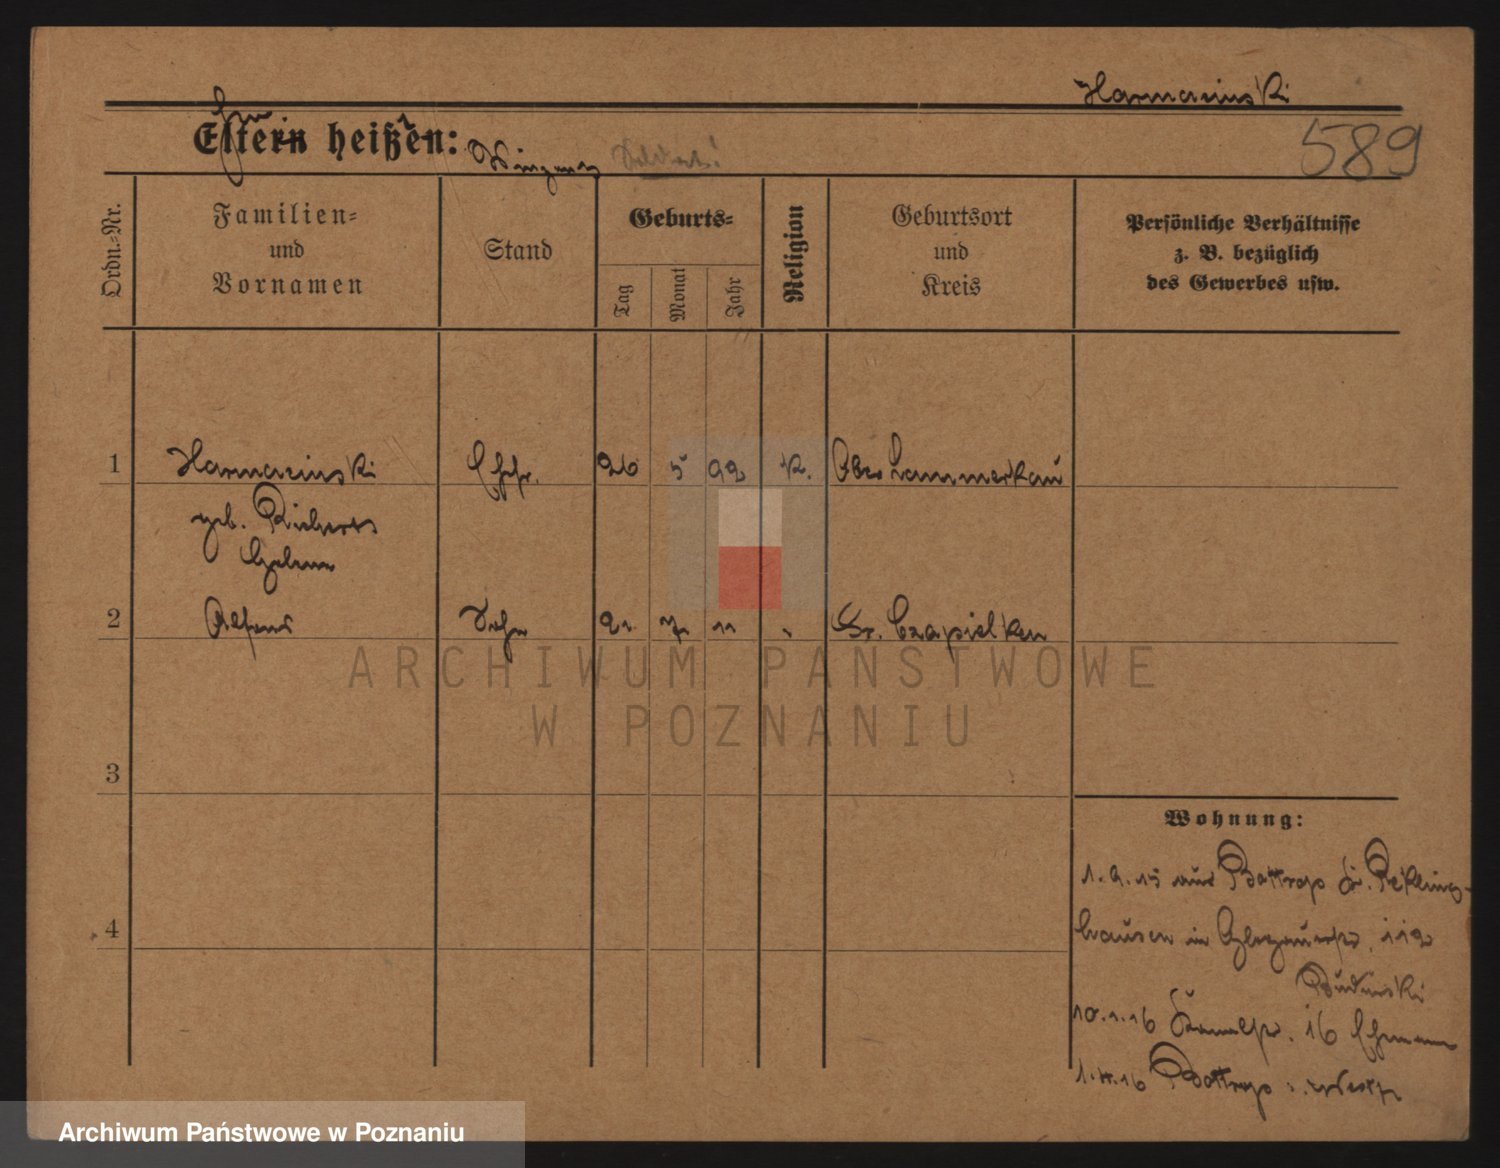 Harmacinski
Eltern heißen:
589
Ordn.-Nr.
Familien-
und
Vornamen
Stand
Geburts-
Tag
Monat
Jahr
Religion
Geburtsort
und
Kreis
Persönliche Verhältnisse
z. B. bezüglich
des Gewerbes usw.
1 Harmacinski Ehfr. 26 5 92 K. Ober Sommerkau
geb. Richert
Helene
2 Alfons Sohn 21 7 11 Kr. Czapielken
3
4
Wohnung:
1.9.15 aus Bottrop Kr. Rekling-
hausen in Glogauerstr. 112
Budinski
10.1.16 Kanalstr. 16 Ehmann
1.4.16 Bottrop i. Westf.
ARCHIWUM PAŃSTWOWE
W POZNANIU
Archiwum Państwowe w Poznaniu